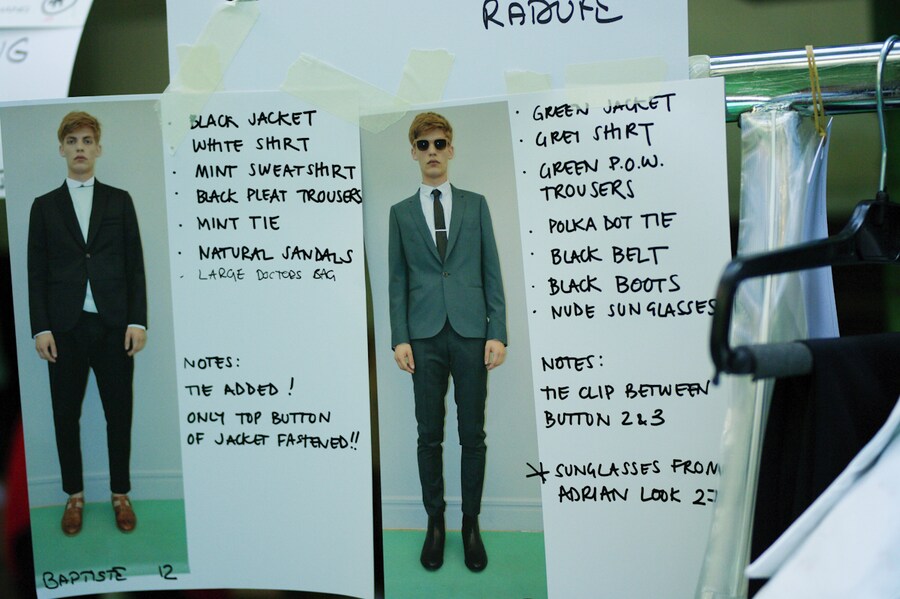 RADUKE
BLACK JACKET
WHITE SHIRT
MINT SWEATSHIRT
BLACK PLEAT TROUSERS
MINT TIE
NATURAL SANDALS
LARGE DOCTORS BAG
NOTES:
TIE ADDED !
ONLY TOP BUTTON
OF JACKET FASTENED!!
BAPTISTE 12
GREEN JACKET
GREY SHIRT
GREEN P.O.W.
TROUSERS
POLKA DOT TIE
BLACK BELT
BLACK BOOTS
NUDE SUNGLASSES
NOTES:
TIE CLIP BETWEEN
BUTTON 2&3
* SUNGLASSES FROM
ADRIAN LOOK